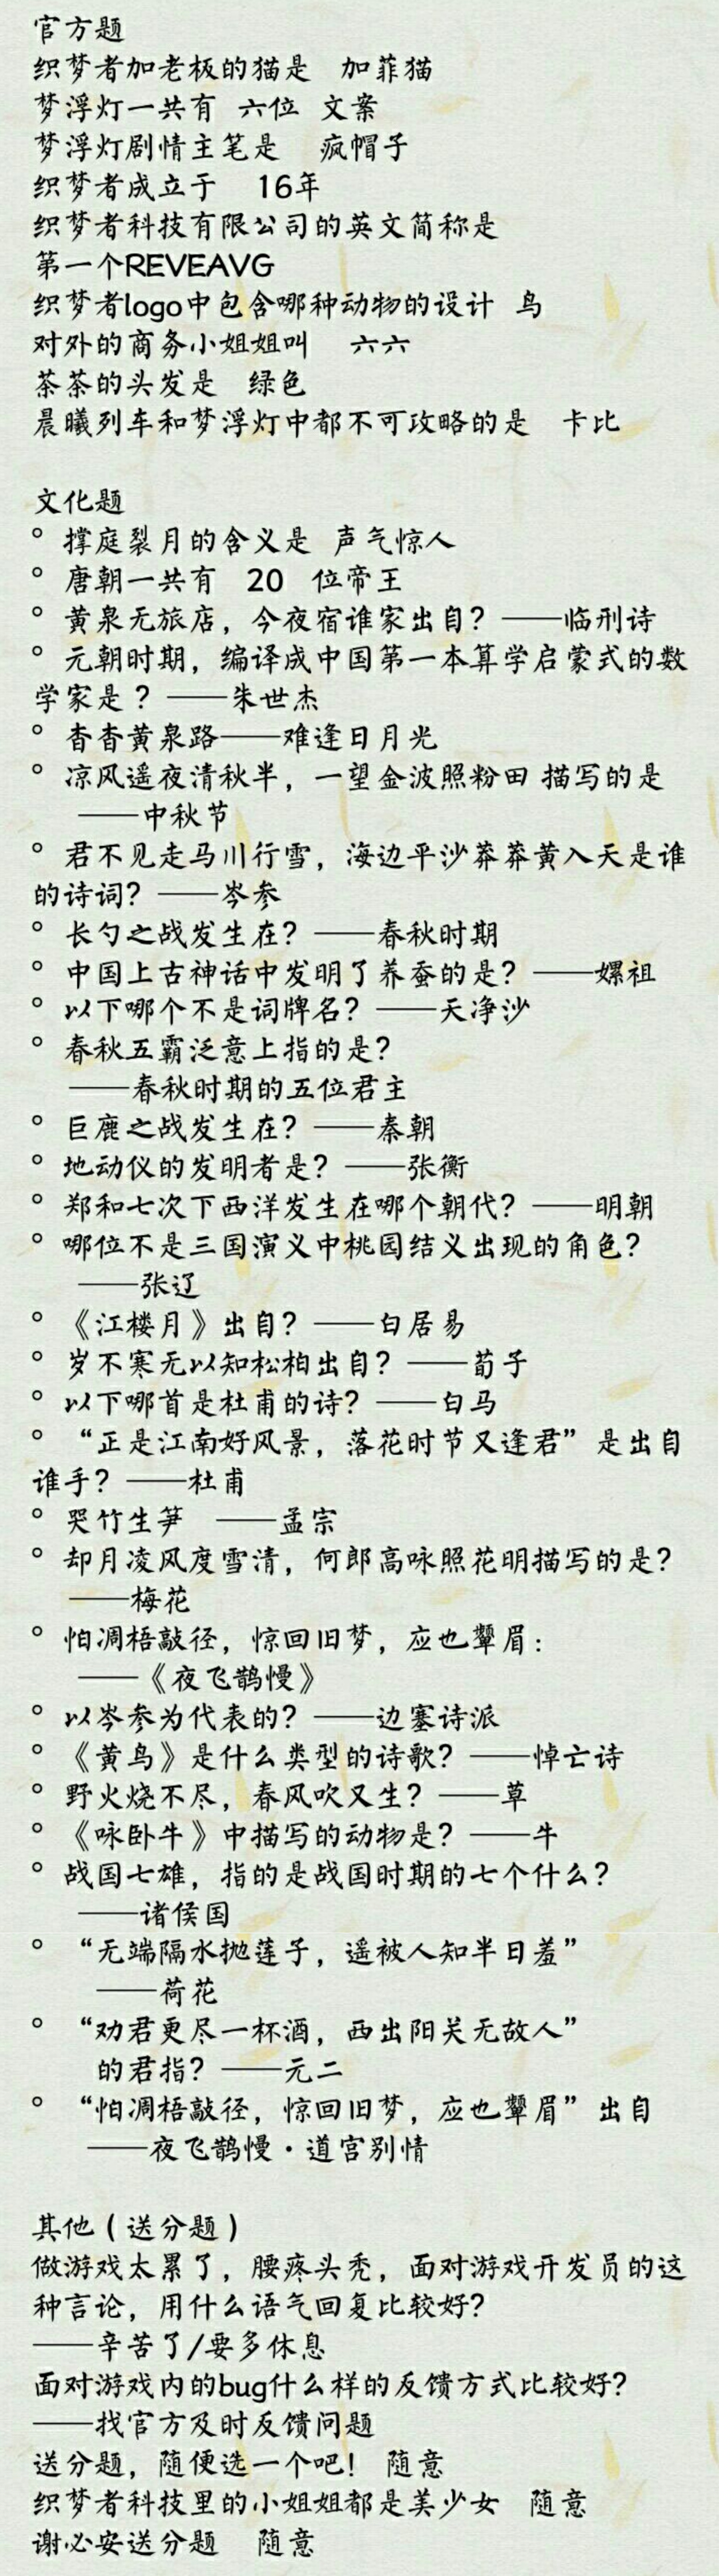 官方题
织梦者加老板的猫是 加菲猫
梦浮灯一共有 六位 文案
梦浮灯剧情主笔是 疯帽子
织梦者成立于 16年
织梦者科技有限公司的英文简称是
第一个REVEAVG
织梦者logo中包含哪种动物的设计 鸟
对外的商务小姐姐叫 六六
茶茶的头发是 绿色
晨曦列车和梦浮灯中都不可攻略的是 卡比
文化题
° 撑庭裂月的含义是 声气惊人
° 唐朝一共有 20 位帝王
° 黄泉无旅店，今夜宿谁家出自？——临刑诗
° 元朝时期，编译成中国第一本算学启蒙式的数
学家是？——朱世杰
° 杳杳黄泉路——难逢日月光
° 凉风遥夜清秋半，一望金波照粉田 描写的是
——中秋节
° 君不见走马川行雪，海边平沙莽莽黄入天是谁
的诗词？——岑参
° 长勺之战发生在？——春秋时期
° 中国上古神话中发明了养蚕的是？——嫘祖
° 以下哪个不是词牌名？——天净沙
° 春秋五霸泛意上指的是？
——春秋时期的五位君主
° 巨鹿之战发生在？——秦朝
° 地动仪的发明者是？——张衡
° 郑和七次下西洋发生在哪个朝代？——明朝
° 哪位不是三国演义中桃园结义出现的角色？
——张辽
° 《江楼月》出自？——白居易
° 岁不寒无以知松柏出自？——荀子
° 以下哪首是杜甫的诗？——白马
° “正是江南好风景，落花时节又逢君”是出自
谁手？——杜甫
° 哭竹生笋 ——孟宗
° 却月凌风度雪清，何郎高咏照花明描写的是？
——梅花
° 怕凋梧敲径，惊回旧梦，应也颦眉：
——《夜飞鹊慢》
° 以岑参为代表的？——边塞诗派
° 《黄鸟》是什么类型的诗歌？——悼亡诗
° 野火烧不尽，春风吹又生？——草
° 《咏卧牛》中描写的动物是？——牛
° 战国七雄，指的是战国时期的七个什么？
——诸侯国
° “无端隔水抛莲子，遥被人知半日羞”
——荷花
° “劝君更尽一杯酒，西出阳关无故人”
的君指？——元二
° “怕凋梧敲径，惊回旧梦，应也颦眉”出自
——夜飞鹊慢·道宫别情
其他（送分题）
做游戏太累了，腰疼头秃，面对游戏开发员的这
种言论，用什么语气回复比较好？
——辛苦了/要多休息
面对游戏内的bug什么样的反馈方式比较好？
——找官方及时反馈问题
送分题，随便选一个吧！ 随意
织梦者科技里的小姐姐都是美少女 随意
谢必安送分题 随意